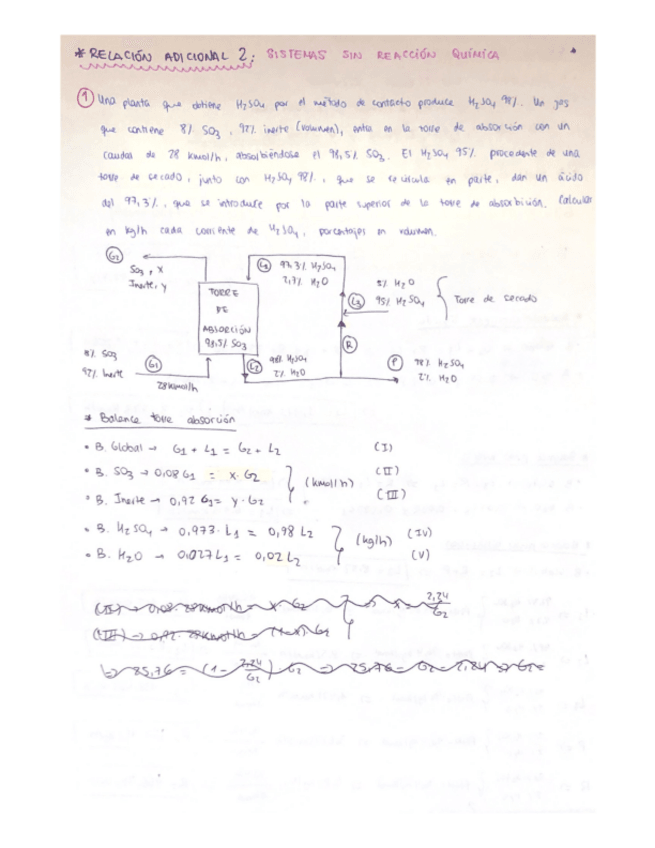 * RELACIÓN ADICIONAL 2: SISTEMAS SIN REACCIÓN QUÍMICA
① Una planta que obtiene H₂SO₄ por el método de contacto produce H₂SO₄ 98%. Un gas
que contiene 8% SO₃, 92% inerte (volumen), entra en la torre de absorción con un
caudal de 28 kmol/h, absorbiéndose el 98,5% SO₃. El H₂SO₄ 95% procedente de una
torre de secado, junto con H₂SO₄ 98%, que se recircula en parte, dan un ácido
del 97,3%, que se introduce por la parte superior de la torre de absorbición. Calcular
en kg/h cada corriente de H₂SO₄, porcentajes en volumen.
G₂
SO₃, x
Inerte, y
L₁ 97,3% H₂SO₄
2,7% H₂O
TORRE
DE
ABSORCIÓN
98,5% SO₃
5% H₂O
L₃ 95% H₂SO₄
Torre de secado
R
8% SO₃
92% Inerte
G₁
28 kmol/h
L₂ 98% H₂SO₄
2% H₂O
P 98% H₂SO₄
2% H₂O
* Balance torre absorción
• B. Global → G₁ + L₁ = G₂ + L₂ (I)
• B. SO₃ → 0,08 G₁ = x · G₂ (II)
(kmol/h)
• B. Inerte → 0,92 G₁ = y · G₂ (III)
• B. H₂SO₄ → 0,973 · L₁ = 0,98 L₂ (IV)
(kg/h)
• B. H₂O → 0,027 L₁ = 0,02 L₂ (V)
(II) → 0,08 · 28 kmol/h = x · G₂ ⇒ x = 2,24/G₂